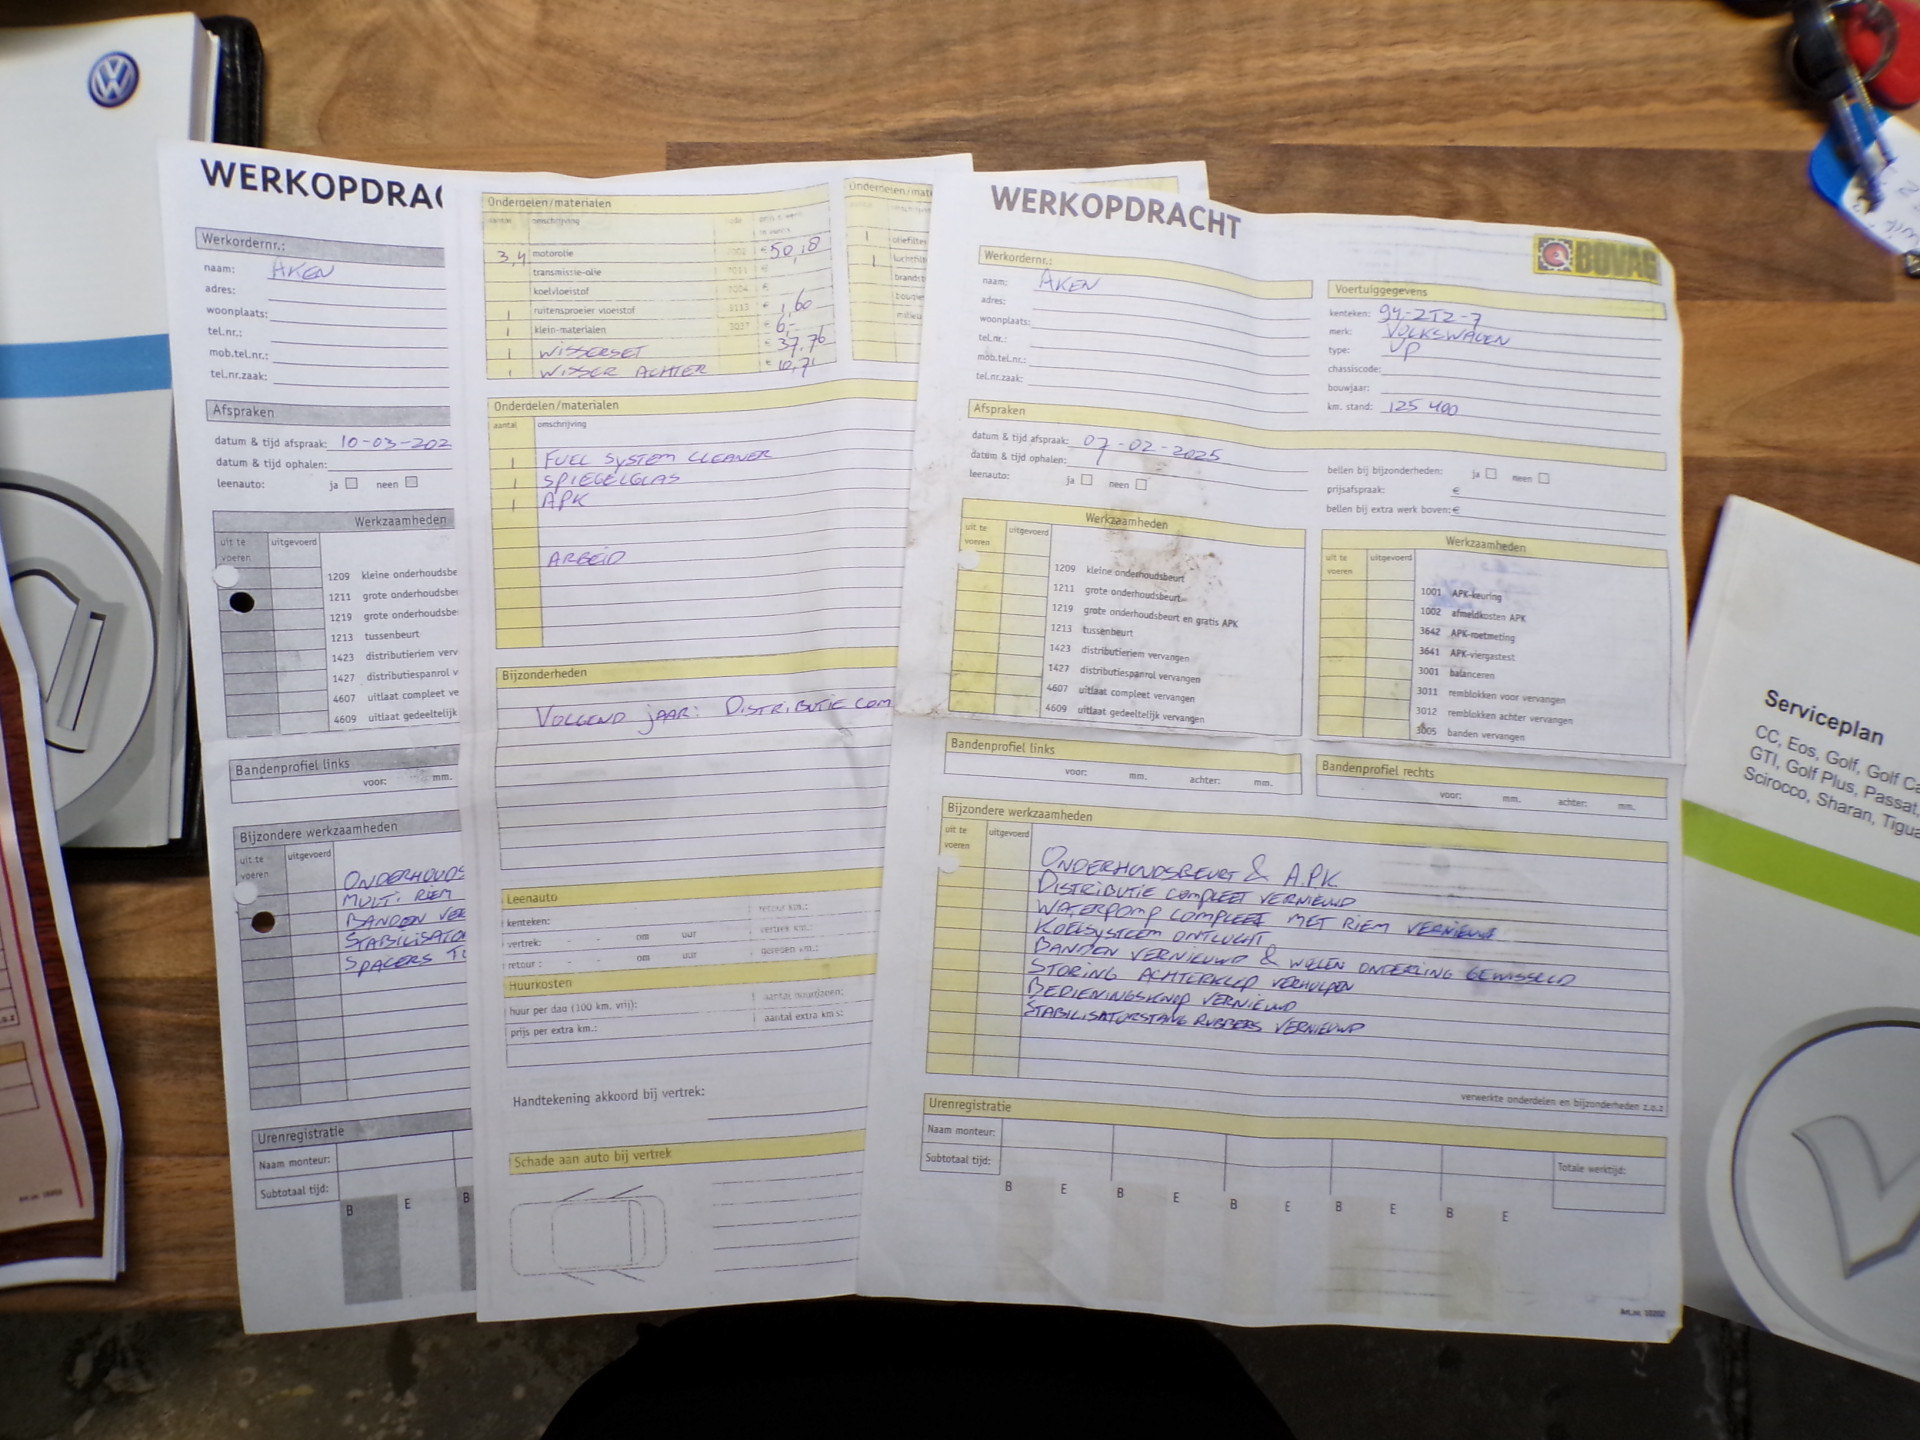 WERKOPDRAC
Werkordernr.:
naam: AKEN
adres:
woonplaats:
tel.nr.:
mob.tel.nr.:
tel.nr.zaak:
Afspraken
datum & tijd afspraak: 10-03-202
datum & tijd ophalen:
leenauto: ja neen
Werkzaamheden
uit te voeren uitgevoerd
1209 kleine onderhoudsbe
1211 grote onderhoudsbe
1219 grote onderhoudsbe
1213 tussenbeurt
1423 distributieriem verv
1427 distributiespanrol v
4607 uitlaat compleet ve
4609 uitlaat gedeeltelijk
Bandenprofiel links
voor: mm.
Bijzondere werkzaamheden
uit te voeren uitgevoerd
ONDERHOUDS
MULTI RIEM
BANDEN VER
STABILISATO
SPACERS
Urenregistratie
Naam monteur:
Subtotaal tijd:
B E B
Onderdelen/materialen
aantal omschrijving
3,4 motorolie € 50,18
transmissie-olie €
koelvloeistof €
1 ruitensproeier vloeistof € 1,60
1 klein-materialen € 6,-
1 WISSERSET € 37,76
1 WISSER ACHTER € 10,71
Onderdelen/mate
1 oliefilter
1 luchtfilt
brandst
milieu
Onderdelen/materialen
aantal omschrijving
1 FUEL SYSTEM CLEANER
1 SPIEGELGLAS
1 APK
ARBEID
Bijzonderheden
VOLGEND JAAR: DISTRIBUTIE COM
Leenauto
kenteken: retour km.:
vertrek: - - om uur vertrek km.:
retour: - - om uur gereden km.:
Huurkosten
huur per dag (100 km. vrij): aantal huurdagen:
prijs per extra km.: aantal extra km's:
Handtekening akkoord bij vertrek:
Schade aan auto bij vertrek
WERKOPDRACHT
BOVAG
Werkordernr.:
naam: AKEN
adres:
woonplaats:
tel.nr.:
mob.tel.nr.:
tel.nr.zaak:
Voertuiggegevens
kenteken: 94-ZTZ-7
merk: VOLKSWAGEN
type: UP
chassiscode:
bouwjaar:
km. stand: 125 400
Afspraken
datum & tijd afspraak: 07-02-2025
datum & tijd ophalen:
leenauto: ja neen
bellen bij bijzonderheden: ja neen
prijsafspraak: €
bellen bij extra werk boven: €
Werkzaamheden
uit te voeren uitgevoerd
1209 kleine onderhoudsbeurt
1211 grote onderhoudsbeurt
1219 grote onderhoudsbeurt en gratis APK
1213 tussenbeurt
1423 distributieriem vervangen
1427 distributiespanrol vervangen
4607 uitlaat compleet vervangen
4609 uitlaat gedeeltelijk vervangen
Werkzaamheden
uit te voeren uitgevoerd
1001 APK-keuring
1002 afmeldkosten APK
3642 APK-roetmeting
3641 APK-viergastest
3001 balanceren
3011 remblokken voor vervangen
3012 remblokken achter vervangen
3005 banden vervangen
Bandenprofiel links
voor: mm. achter: mm.
Bandenprofiel rechts
voor: mm. achter: mm.
Bijzondere werkzaamheden
uit te voeren uitgevoerd
ONDERHOUDSBEURT & A.P.K
DISTRIBUTIE COMPLEET VERNIEUWD
WATERPOMP COMPLEET MET RIEM VERNIEUWD
KOELSYSTEEM ONTLUCHT
BANDEN VERNIEUWD & WIELEN ONDERLING GEWISSELD
STORING ACHTERKLEP VERHOLPEN
BEDIENINGSKNOP VERNIEUWD
STABILISATORSTANG RUBBERS VERNIEUWD
verwerkte onderdelen en bijzonderheden z.o.z
Urenregistratie
Naam monteur:
Subtotaal tijd:
Totale werktijd:
B E B E B E B E B E
Serviceplan
CC, Eos, Golf, Golf Ca
GTI, Golf Plus, Passat,
Scirocco, Sharan, Tigua